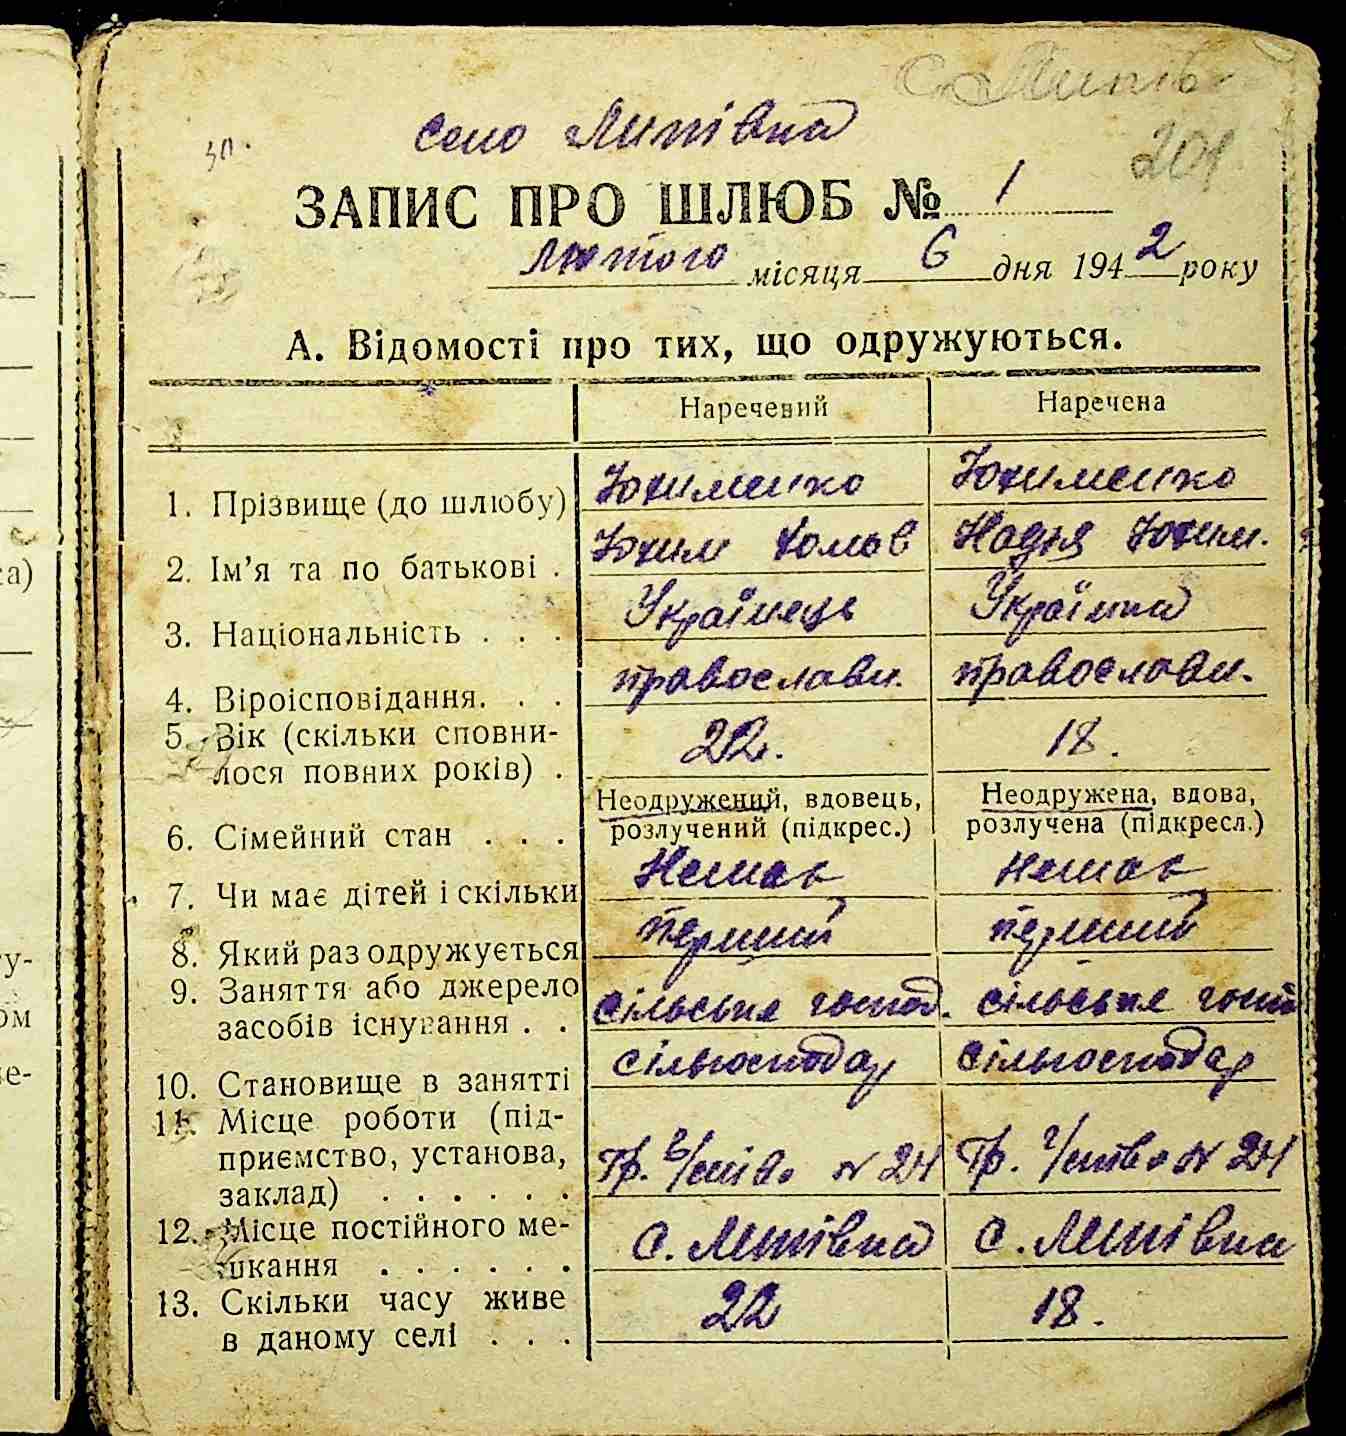 с. Липів
село Липівка
зп.
201
ЗАПИС ПРО ШЛЮБ № 1
Лютого місяця 6 дня 1942 року
А. Відомості про тих, що одружуються.
Наречений Наречена
1. Прізвище (до шлюбу) Юхименко Юхименко
2. Ім'я та по батькові . Юхим Хомов Надія Юхим.
3. Національність . . . Українець Українка
4. Віроісповідання. . . православн. православн.
5. Вік (скільки сповни-
лося повних років) . 22. 18.
6. Сімейний стан . . . Неодружений, вдовець, Неодружена, вдова,
розлучений (підкрес.) розлучена (підкресл.)
7. Чи має дітей і скільки Немає Немає
8. Який раз одружується перший перший
9. Заняття або джерело
засобів існування . . сільське господ. сільське госп
10. Становище в занятті сільгосподар сільгосподар
11. Місце роботи (під-
приємство, установа,
заклад) . . . . . . Гр. № 24 Гр. № 24
12. Місце постійного ме-
шкання . . . . . . с. Липівка с. Липівка
13. Скільки часу живе
в даному селі . . . 22 18.
са)
у-
ом
е-